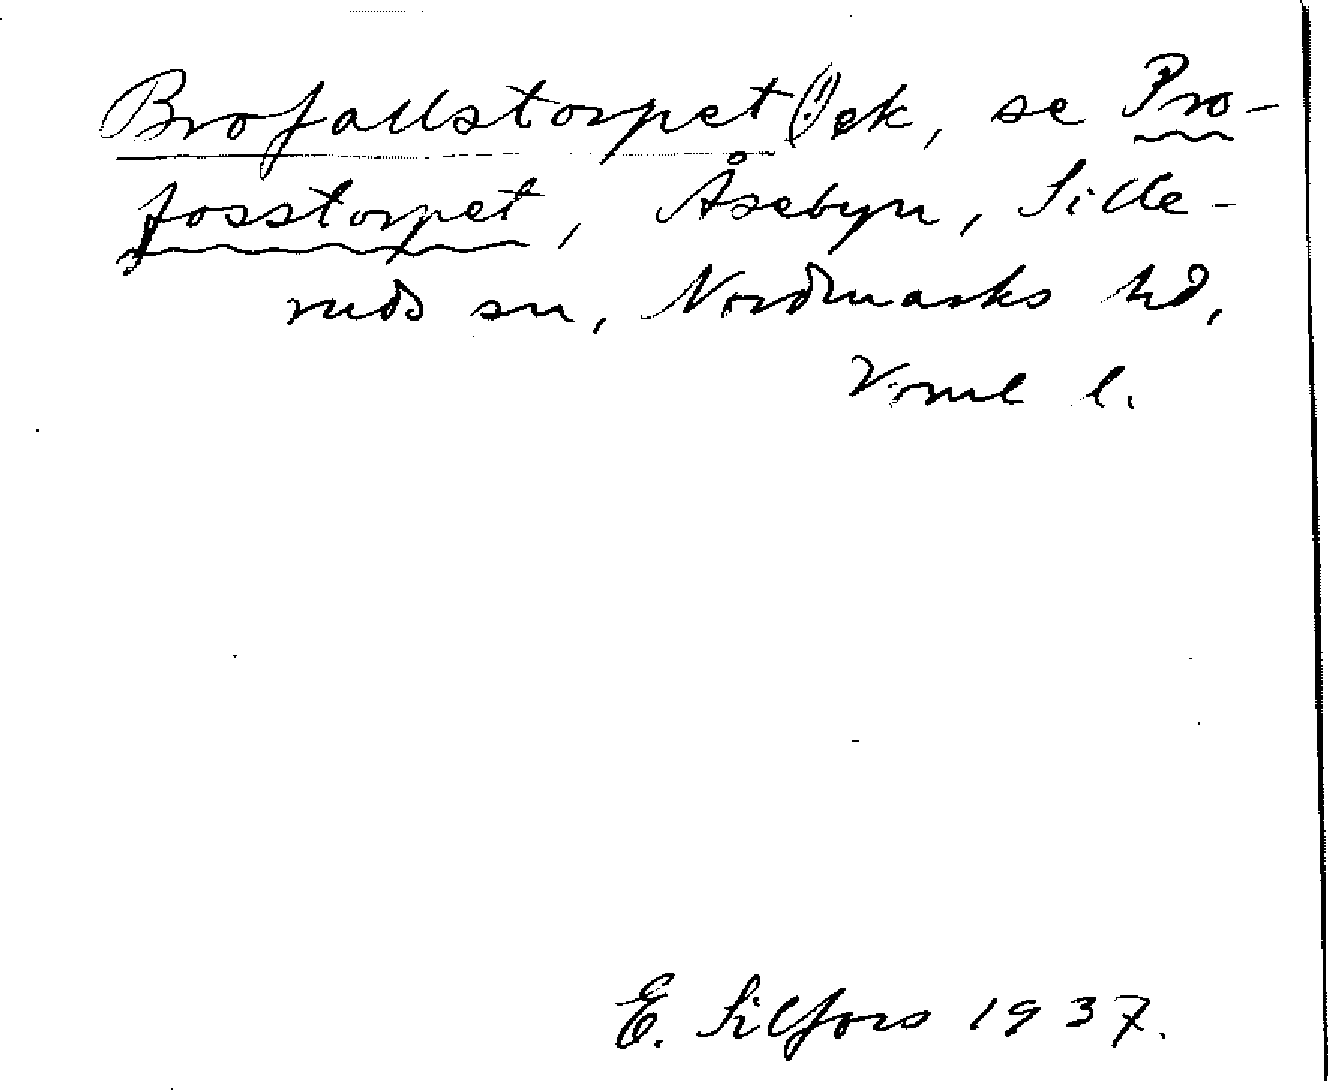 Brofallstorpet (!) ek, se Pro-
fosstorpet, Åsebyn, Sille-
ruds sn, Nordmarks hd,
Vrml l.
E. Silfors 1937.